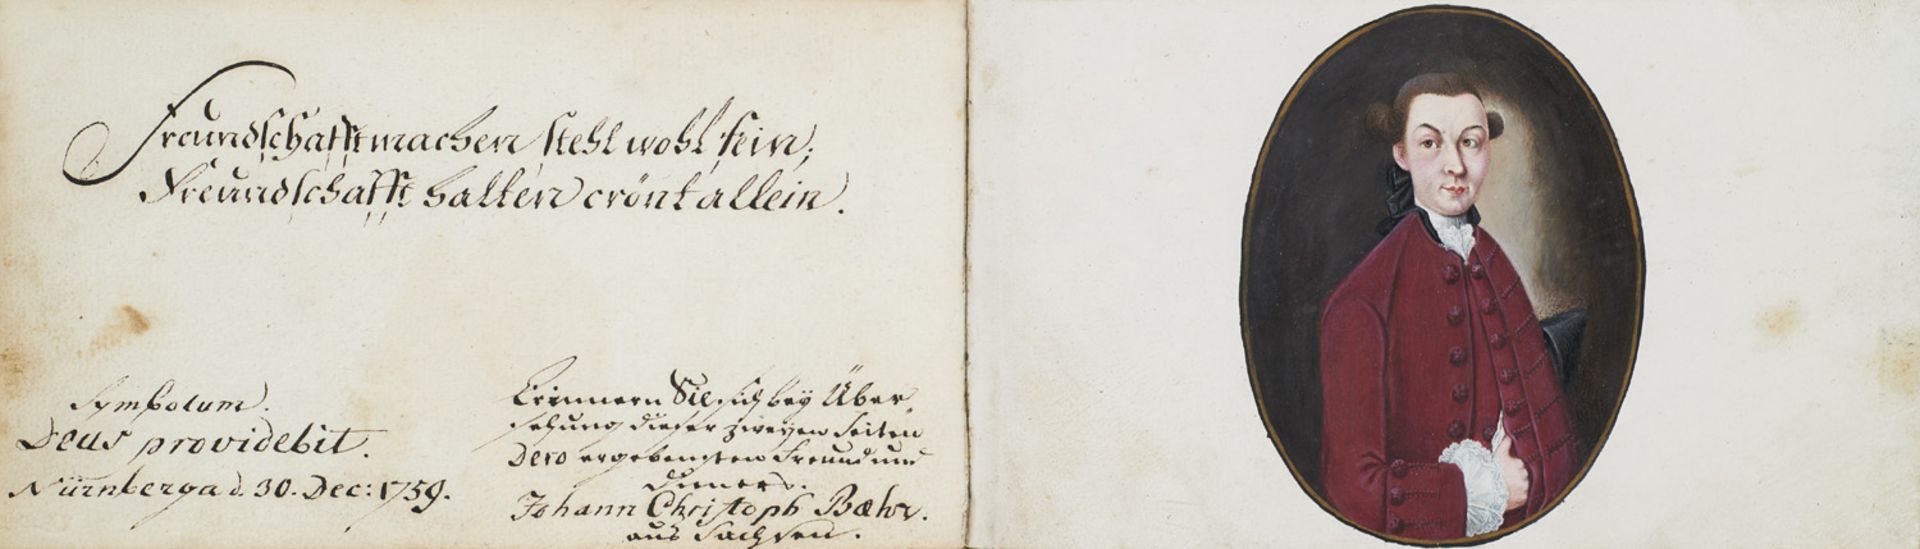 Freundschafft machen steht wohl fein;
Freundschafft halten crönt allein.
Symbolum.
Deus providebit.
Nürnberga d. 30. Dec: 1759.
Erinnern Sie sich bey Über
sehung dieser zweyen Seiten
Dero ergebensten Freund und
Dieners.
Johann Christoph Bæhr.
aus Sachsen.